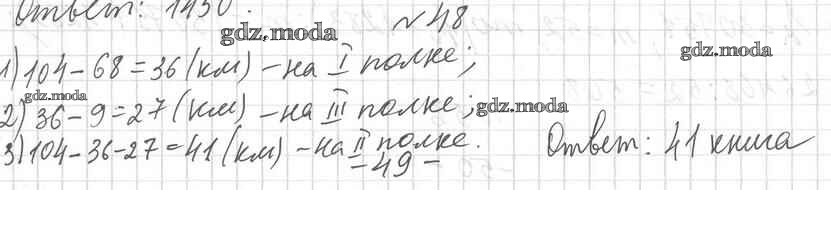 Ответ: 1430.
№48
gdz.moda
gdz.moda
1) 104 - 68 = 36 (км) - на I полке;
gdz.moda
2) 36 - 9 = 27 (км) - на III полке;
gdz.moda
3) 104 - 36 - 27 = 41 (км) - на II полке.
Ответ: 41 книга
- 49 -